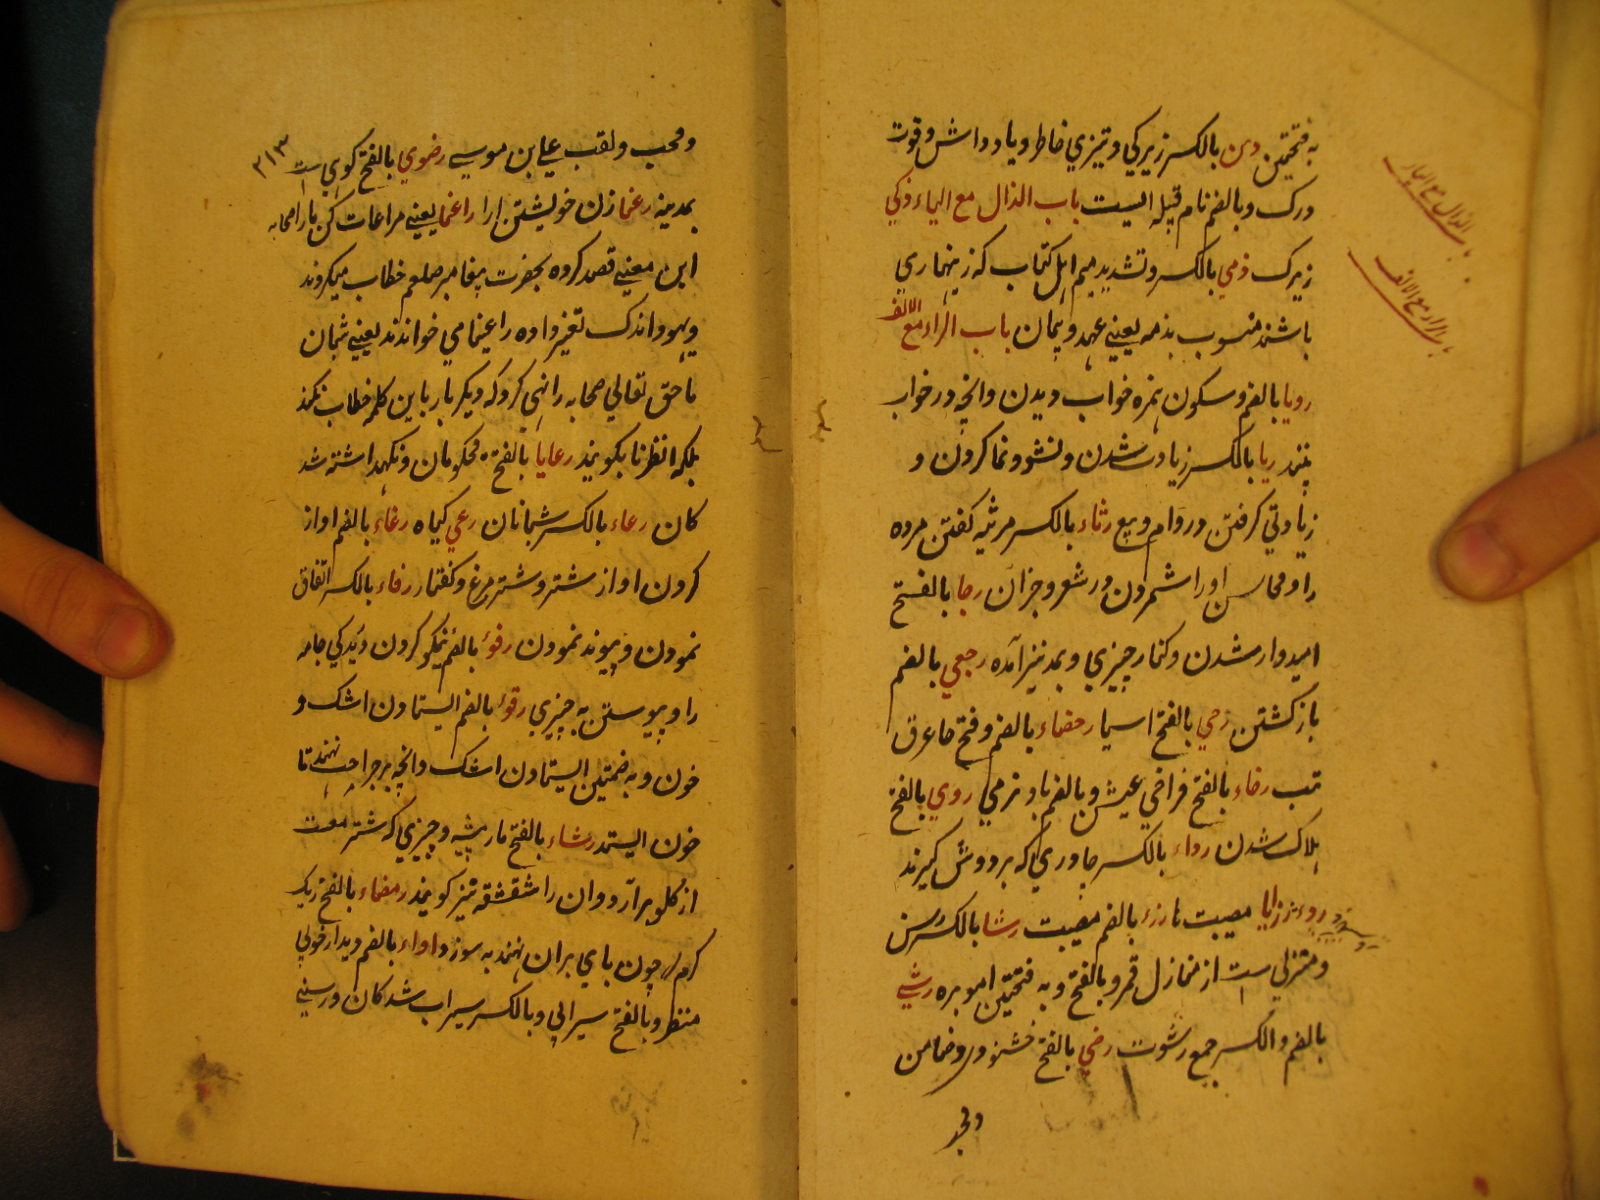 به فتحتین دهن بالکسر زیرکی و تیزی خاطر و یاد داشت و قوت
درک و بالضم نام قبیله ایست باب الذال مع الیاء ذکی
زیرک ذمی بالکسر و تشدید میم اهل کتاب که زینهاری
باشند منسوب بذمه یعنی عهد و پیمان باب الراء مع الالف
رویا بالضم و سکون همزه خواب دیدن و انچه در خواب
بینند ربا بالکسر زیادت شدن و نشو و نما کردن و
زیادتی گرفتن در وام و بیع رثاء بالکسر مرثیه گفتن مرده
را و محاسن او را شمردن در شعر و جز آن رجا بالفتح
امیدوار شدن و کنار چیزی و بمد نیز آمده رجعی بالضم
بازگشتن رحی بالفتح اسیا رحضاء بالضم و فتح حا عرق
تب رخاء بالفتح فراخی عیش و بالضم باد نرمی ردی بالفتح
هلاک شدن رداء بالکسر چادری که بر دوش گیرند
رزایا مصیبت ها رزء بالضم مصیبت رشا بالکسر رسن
و منزلی ست از منازل قمر و بالفتح و به فتحتین اهو بره رشی
بالضم و الکسر جمع رشوت رضی بالفتح خشنود و ضامن
و محب
باب الذال مع الیاء
باب الراء مع الالف
۲۱۳
و محب و لقب علی ابن موسی رضوی بالفتح کوهی ست
بمدینه رغما زدن خویشتن را راعنا یعنی مراعات کن مارا صحابه
این معنی قصد کرده بحضرت پیغامبر صلعم خطاب میکردند
و یهود اندک تغیر داده راعینا می خواندند یعنی شبان
ما حق تعالی صحابه را نهی کرد که دیگر بار باین کلمه خطاب نکنند
بلکه انظرنا بگویند رعایا بالفتح محکومان و نگهداشته شد
کان رعاء بالکسر شبانان رعی گیاه رغاء بالضم اواز
کردن اواز شتر و شتر مرغ و کفتار رفاء بالکسر اتفاق
نمودن و پیوند نمودن رفوء بالضم نیکو کردن دریدگی جامه
را و پیوستن به چیزی رقوء بالضم ایستادن اشک و
خون و به ضمتین ایستادن اشک و انچه بر جراحت نهند تا
خون ایستد رشاء بالفتح مار پیشه و چیزی که شتر مست
از گلو برآرد و ان را شقشقه نیز گویند رمضاء بالفتح ریگ
گرم که چون پای بران نهند به سوزد رواء بالضم دیدار خوبی
منظر و بالفتح سیرابی و بالکسر سیراب شدکان و رسنی